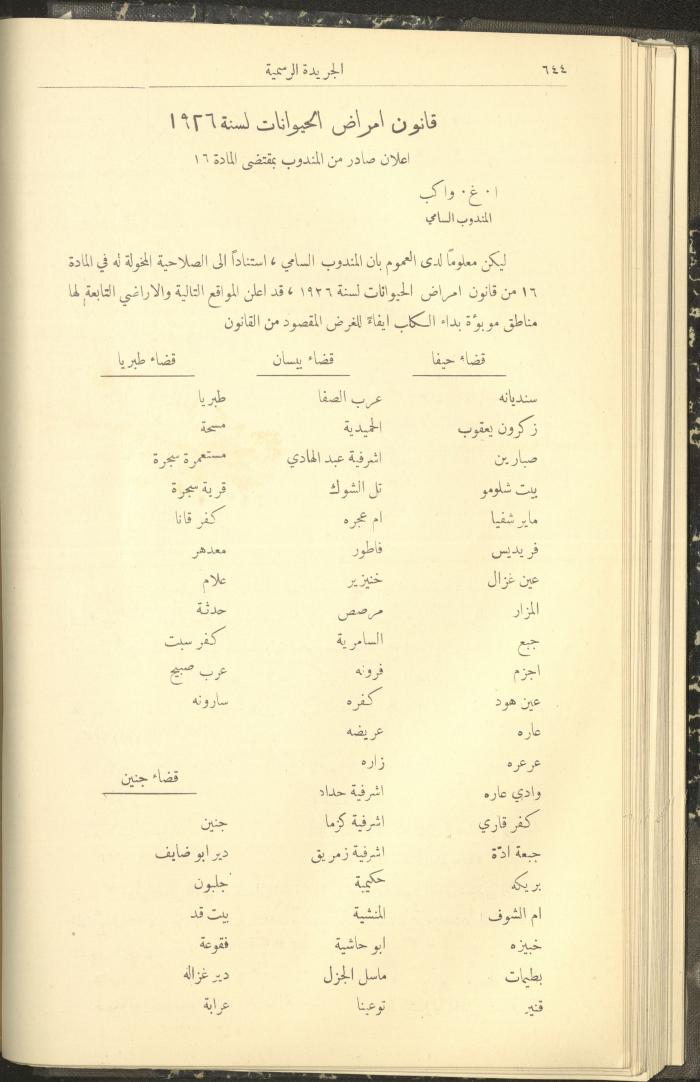 ٦٤٤
الجريدة الرسمية
قانون امراض الحيوانات لسنة ١٩٢٦
اعلان صادر من المندوب بمقتضى المادة ١٦
ا٠ غ٠ واكب
المندوب السامي
ليكن معلوماً لدى العموم بان المندوب السامي ، استناداً الى الصلاحية المخولة له في المادة
١٦ من قانون امراض الحيوانات لسنة ١٩٢٦ ، قد اعلن المواقع التالية والاراضي التابعة لها
مناطق موبوءة بداء الكلب ايفاءً للغرض المقصود من القانون
قضاء حيفا
سنديانه
زكرون يعقوب
صبارين
بيت شلومو
ماير شفيا
فريديس
عين غزال
المزار
جبع
اجزم
عين هود
عاره
عرعره
وادي عاره
كفر قاري
جبعة ادّة
بريكه
ام الشوف
خبيزه
بطيمات
قنير
قضاء بيسان
عرب الصفا
الحميدية
اشرفية عبد الهادي
تل الشوك
ام عجره
فاطور
خنيزير
مرصص
السامرية
فرونه
كفره
عريضه
زاره
اشرفية حداد
اشرفية كزما
اشرفية زمريق
حكيمية
المنشية
ابو حاشية
ماسل الجزل
توعينا
قضاء طبريا
طبريا
مسحة
مستعمرة سجرة
قرية سجرة
كفر قانا
معدهر
علام
حدثة
كفر سبت
عرب صبيح
سارونه
قضاء جنين
جنين
دير ابو ضايف
جلبون
بيت قد
فقوعة
دير غزاله
عرابة